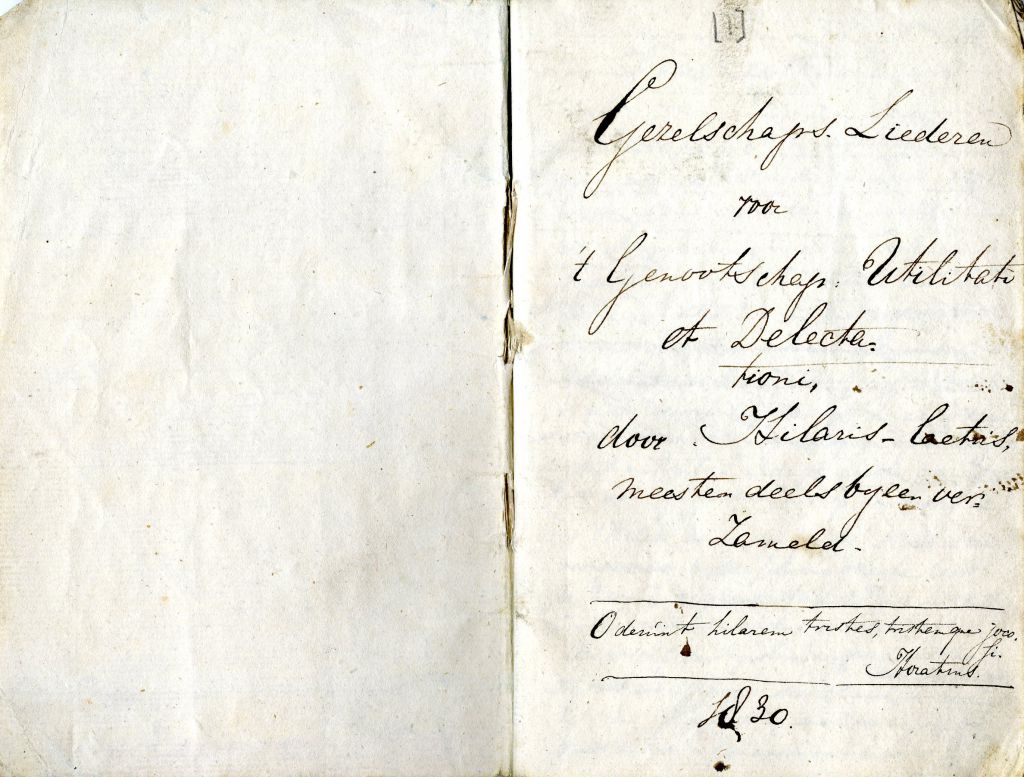 [1]
Gezelschaps. Liederen
voor
't Genootschap: Utilitati
et Delecta=
tioni,
door Hilaris-laetus,
meesten deels byeen ver=
zameld.
Oderúnt hilarem tristes, tristemque joco=
si.
Horatius.
1830.